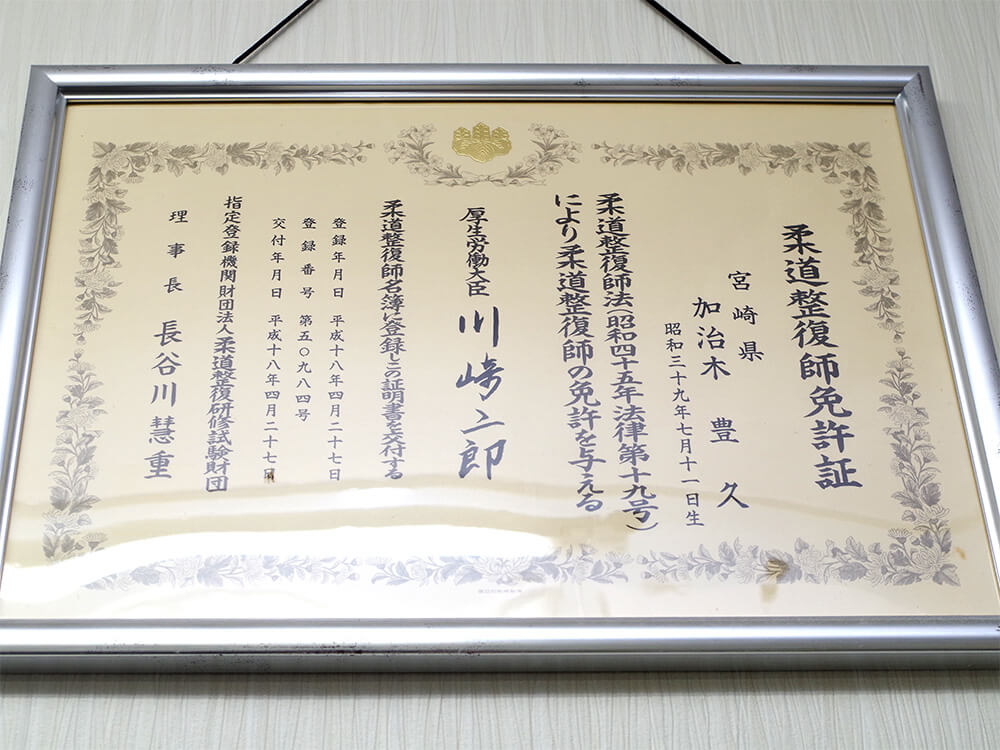 柔道整復師免許証
宮崎県
加治木豊久
昭和三十九年七月十一日生
柔道整復師法(昭和四十五年法律第十九号)
により柔道整復師の免許を与える
厚生労働大臣 川崎二郎
柔道整復師名簿に登録しこの証明書を交付する
登録年月日 平成十八年四月二十七日
登録番号 第五〇九八四号
交付年月日 平成十八年四月二十七日
指定登録機関財団法人柔道整復研修試験財団
理事長 長谷川慧重